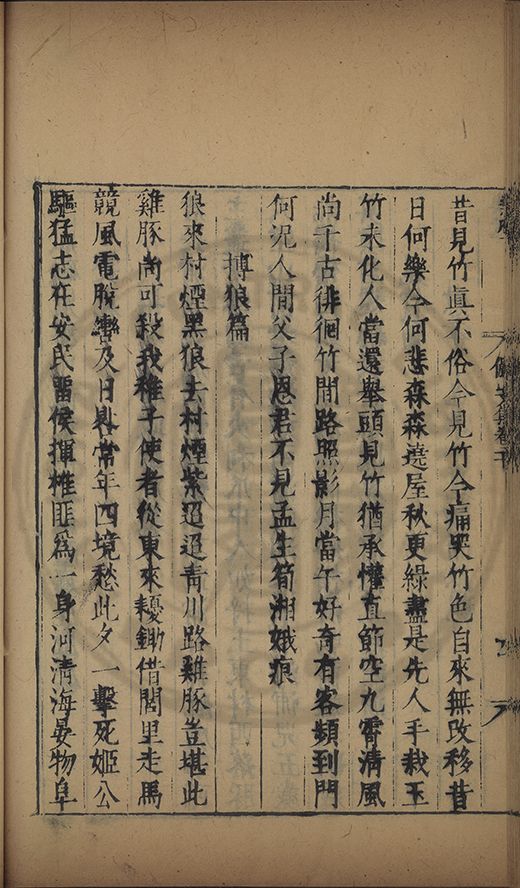 昔見竹眞不俗今見竹令痛哭竹色自來無改移昔
日何樂今何悲森森遶屋秋更綠盡是先人手栽玉
竹未化人當還舉頭見竹猶承懽直節空九霄清風
尚千古徘徊竹間路照影月當午好奇有客頻到門
何況人間父子恩君不見孟生筍湘娥痕
搏狼篇
狼來村煙黑狼去村煙紫迢迢青川路雞豚豈堪此
雞豚尚可殺我稚子使者從東來耰鋤借閭里走馬
競風電脫轡及日晷常年四境愁此夕一擊死姬公
驅猛志在安民畱侯揮椎匪爲一身河淸海晏物阜